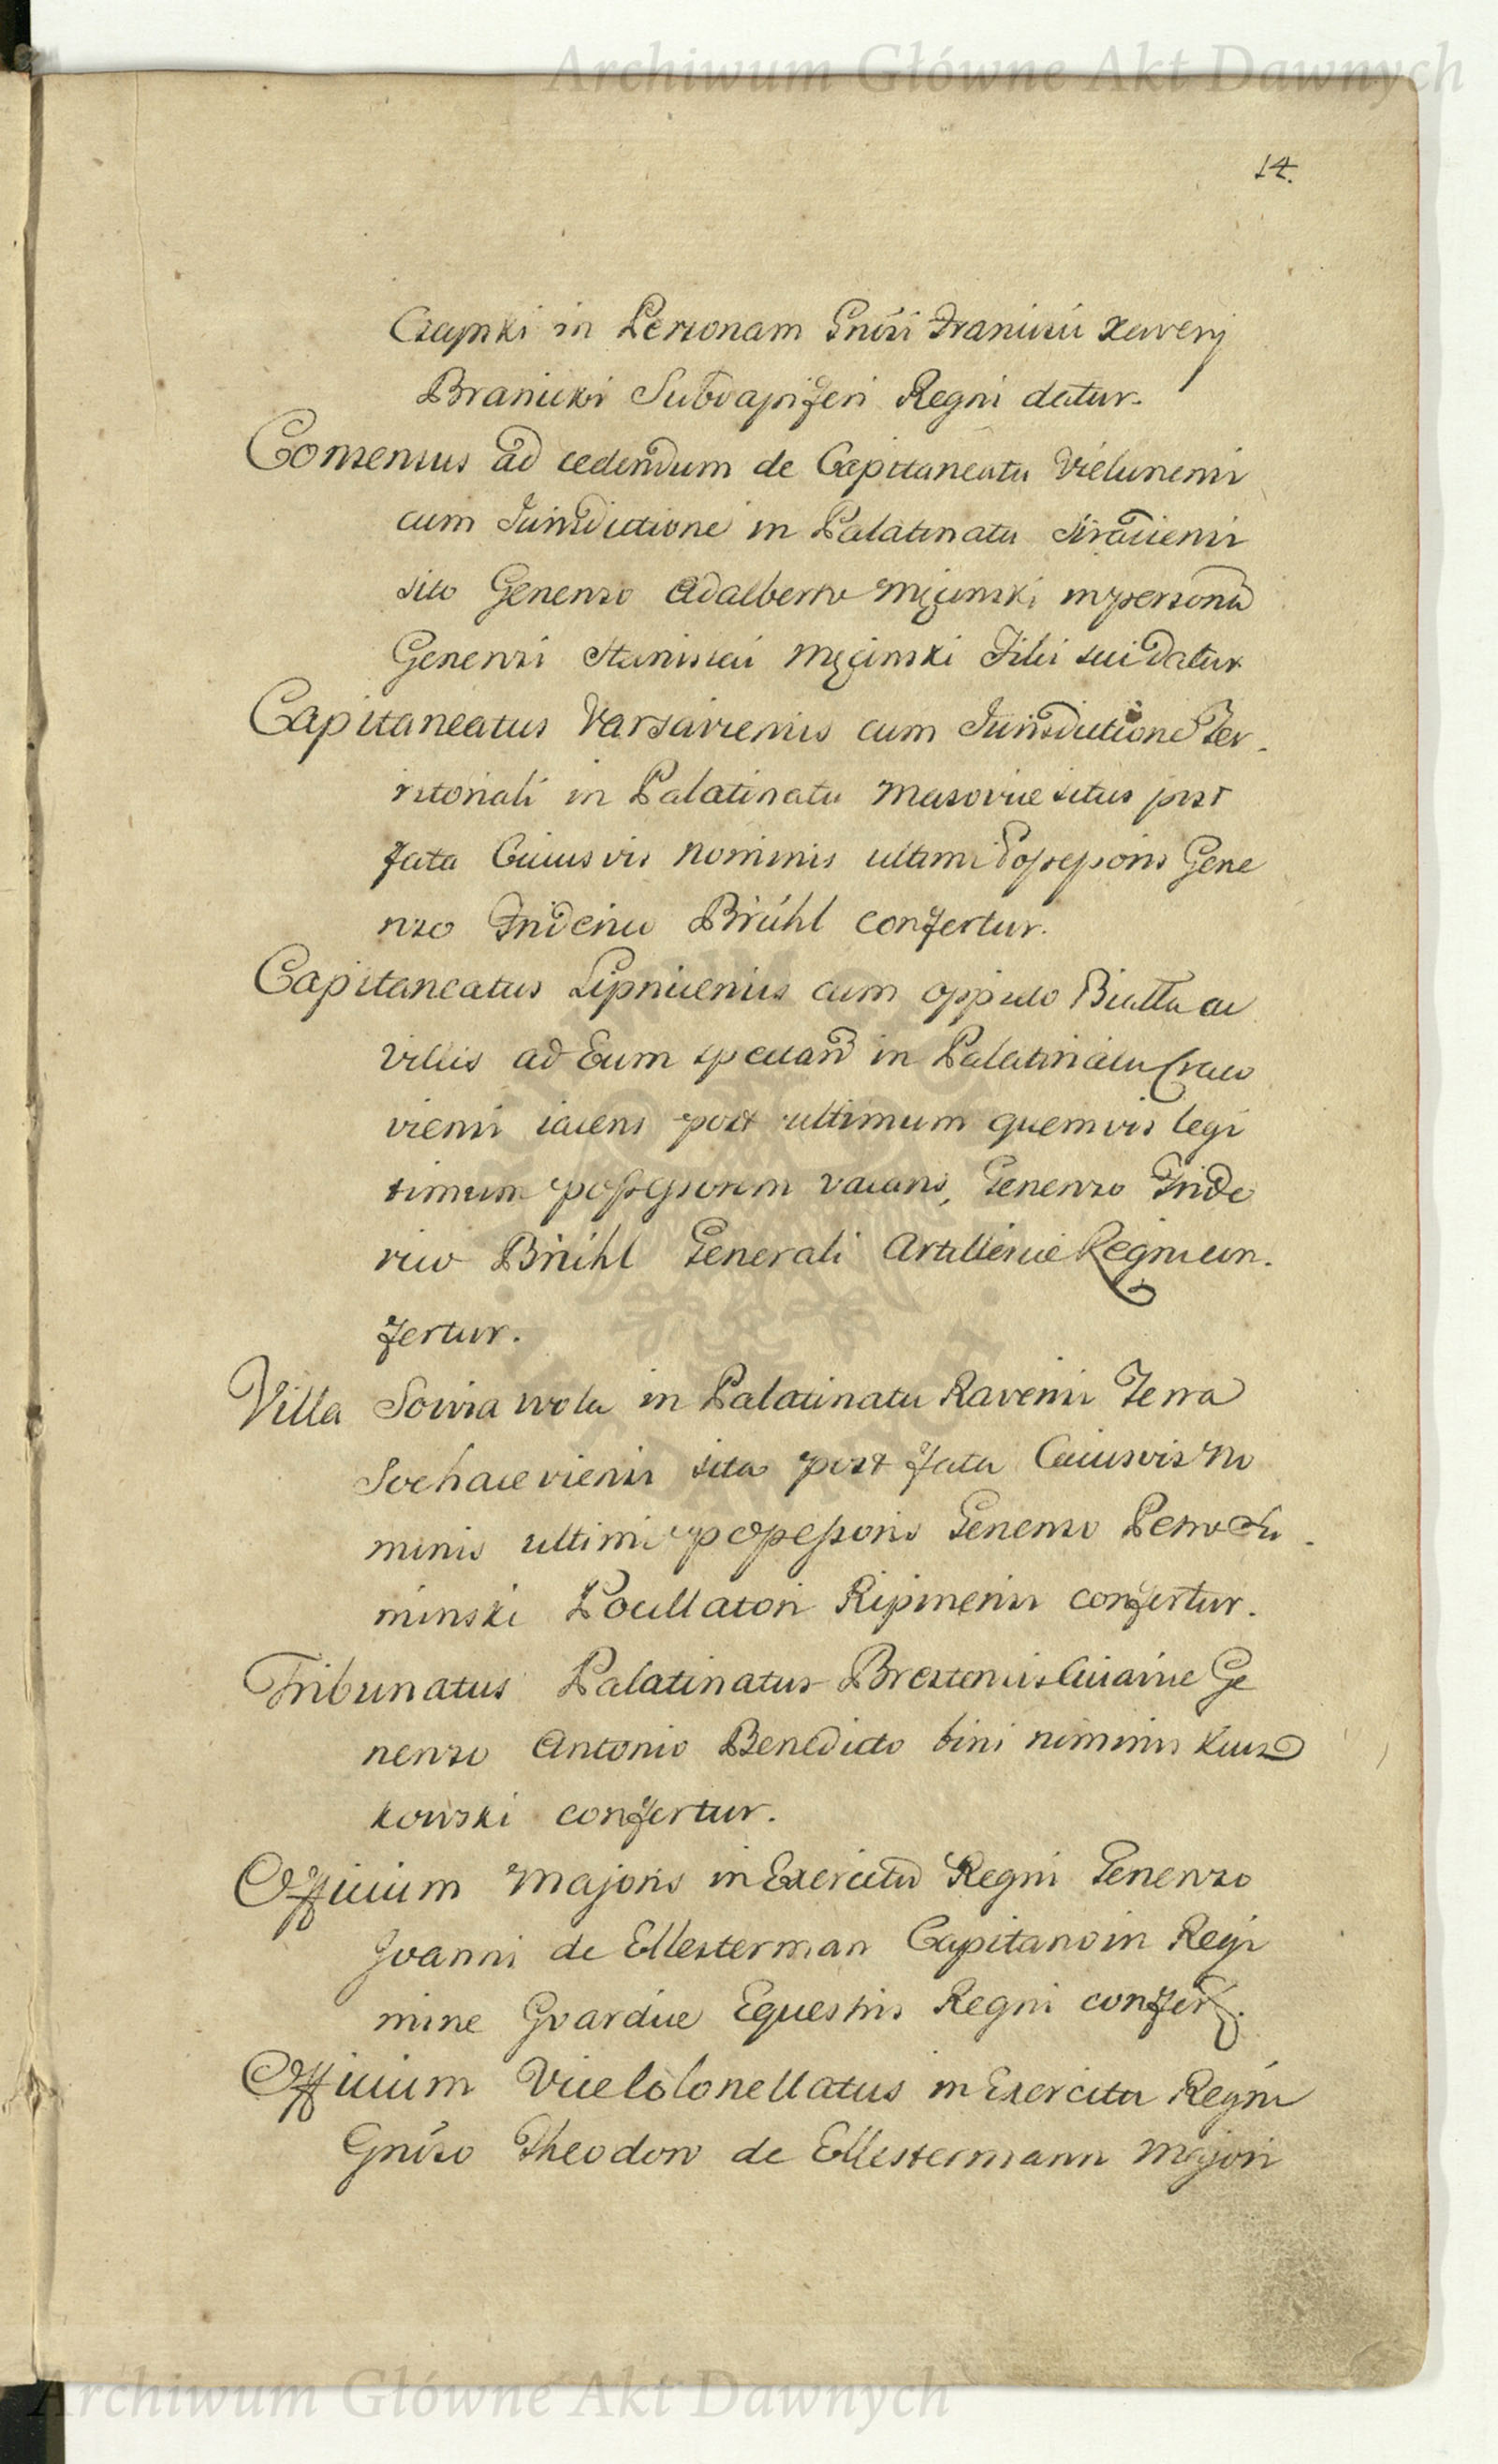 Archiwum Główne Akt Dawnych
14.
Czapski in Personam Gnosi Francisci Xaverij
Branicki Subdapiferi Regni datur.
Consensus ad cedendum de Capitaneatu Vielunensi
cum Jurisdictione in Palatinatu Siradiensi
sito Generoso Adalberto Męcinski in personam
Generosi Stanislai Męcinski Filii sui Datur
Capitaneatus Varsaviensis cum Jurisdictione Ter-
ritoriali in Palatinatu Masoviae situs post
fata Cuiusvis Nominis ultimi Possessoris Gene
roso Friderico Brühl confertur.
Capitaneatus Lipnicensis cum oppido Bialla ac
villis ad Eum spectand in Palatinatu Craco
viensi iacens post ultimum quemvis legi
timum possessorem vacans, Generoso Fride
rico Brühl Generali Artilleriae Regni con-
fertur.
Villa Sowia wola in Palatinatu Ravensi Terra
Sochaceviensi sita post fata Cuiusvis No
minis ultimi possessoris Generoso Petro Lu-
minski Pocillatori Ripinensi confertur.
Tribunatus Palatinatus Brestensis Cuiaviae Ge
neroso Antonio Benedicto bini nominis
kowski confertur.
Officium Majoris in Exercitu Regni Generoso
Joanni de Ellesterman Capitano in Regi
mine Gvardiae Equestris Regni confert.
Officium Vice Colonellatus in Exercitu Regni
Gnoso Theodoro de Ellestermann Majori
Archiwum Główne Akt Dawnych